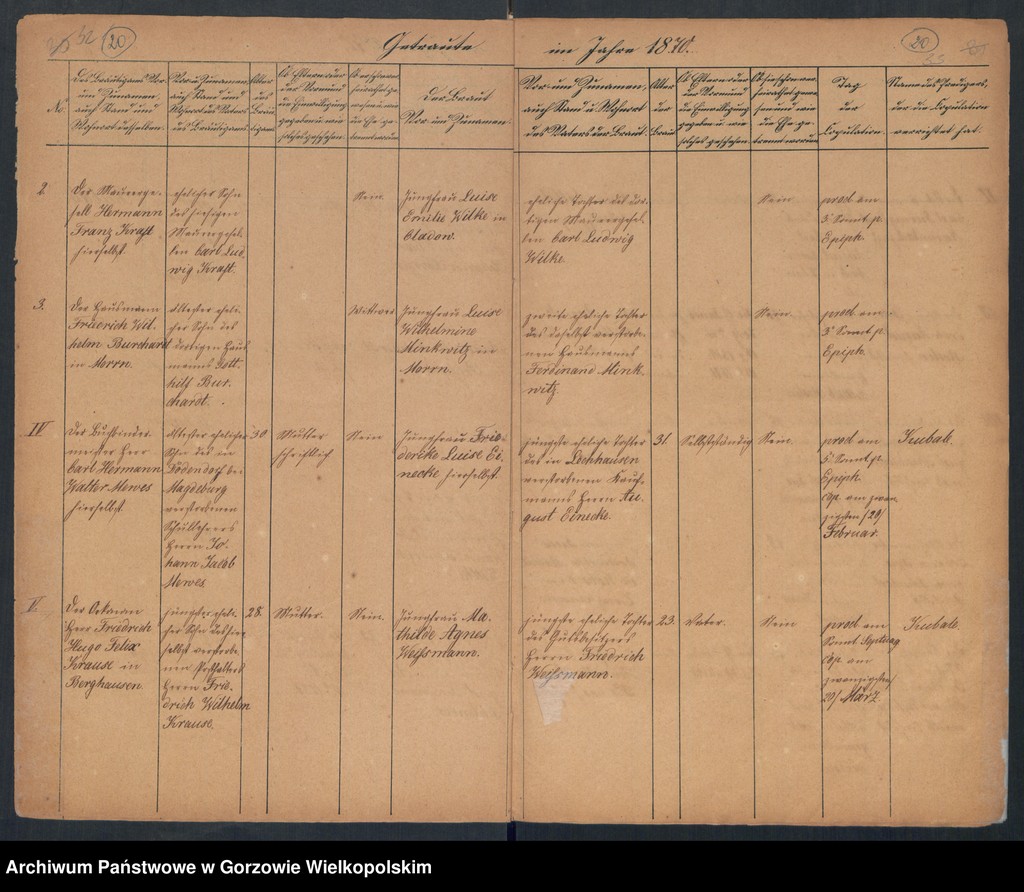 20
Getraute im Jahre 1870.
20
No.
Des Bräutigams Vor-
und Zunamen,
auch Stand und
Wohnort desselben.
Vor u. Zunamen
auch Stand und
Wohnort des Vaters
des Bräutigams
Alter
des
Bräu-
tigams
Ob Eltern oder
der Vormund
die Einwilligung
gegeben u. wie
solches geschehen.
Der Braut
Vor und Zunamen
Vor- und Zunamen,
auch Stand u. Wohnort
des Vaters der Braut.
Alter
der
Braut
Ob Eltern oder
der Vormund
die Einwilligung
gegeben u. wie
solches geschehen
Tag
der
Copulation.
Name des Predigers,
der die Copulation
verrichtet hat.
2.
Der Maurerge-
sell Hermann
Franz Kraft
hierselbst.
ehelicher Sohn
des hiesigen
Maurergesel-
len Carl Lud
wig Kraft.
Nein
Jungfrau Luise
Emilie Wilke in
Cladow.
eheliche Tochter des dor-
tigen Maurergesel-
len Carl Ludwig
Wilke.
Nein
prod am
3 Sonnt. p.
Epiph.
3.
Der Hausmann
Friedrich Wil-
helm Burchardt
in Morrn.
ältester eheli-
cher Sohn des
dortigen Haus
manns Gott-
hilf Bur-
chardt.
Wittwer
Jungfrau Luise
Wilhelmine
Minkwitz in
Morrn.
zweite eheliche Tochter
des daselbst verstorbe-
nen Hausmanns
Ferdinand Mink
witz.
Nein.
prod. am
3 Sonnt. p.
Epiph.
IV
Der Buchbinder-
meister Herr
Carl Hermann
Walter Mewes
hierselbst.
ältester ehelicher
Sohn des in
Bördendorf bei
Magdeburg
verstorbenen
Schullehrers
Herrn Jo-
hann Jacob
Mewes
30
Mutter
schriftlich
Nein
Jungfrau Frie-
derike Luise Ei-
necke hierselbst.
jüngste eheliche Tochter
des in Lechhausen
verstorbenen Kauf-
manns Herrn Au-
gust Einecke.
31.
Selbstständig
Nein.
prod am
5 Sonnt. p.
Epiph.
cop. am zwan
zigsten /20/
Februar.
Kubale.
V.
Der Oekonom
Herr Friedrich
Hugo Felix
Krause in
Berghausen.
jüngster eheli-
cher Sohn des hier
selbst verstorbe-
nen Posthalters
Herrn Frie-
drich Wilhelm
Krause.
28.
Mutter.
Nein.
Jungfrau Ma-
thilde Agnes
Weissmann.
jüngste eheliche Tochter
des Gutsbesitzers
Herrn Friedrich
Weissmann.
23.
Vater.
Nein
prod am
Sonnt. Septuag
cop. am
zwanzigsten
20/ März.
Kubale
Archiwum Państwowe w Gorzowie Wielkopolskim